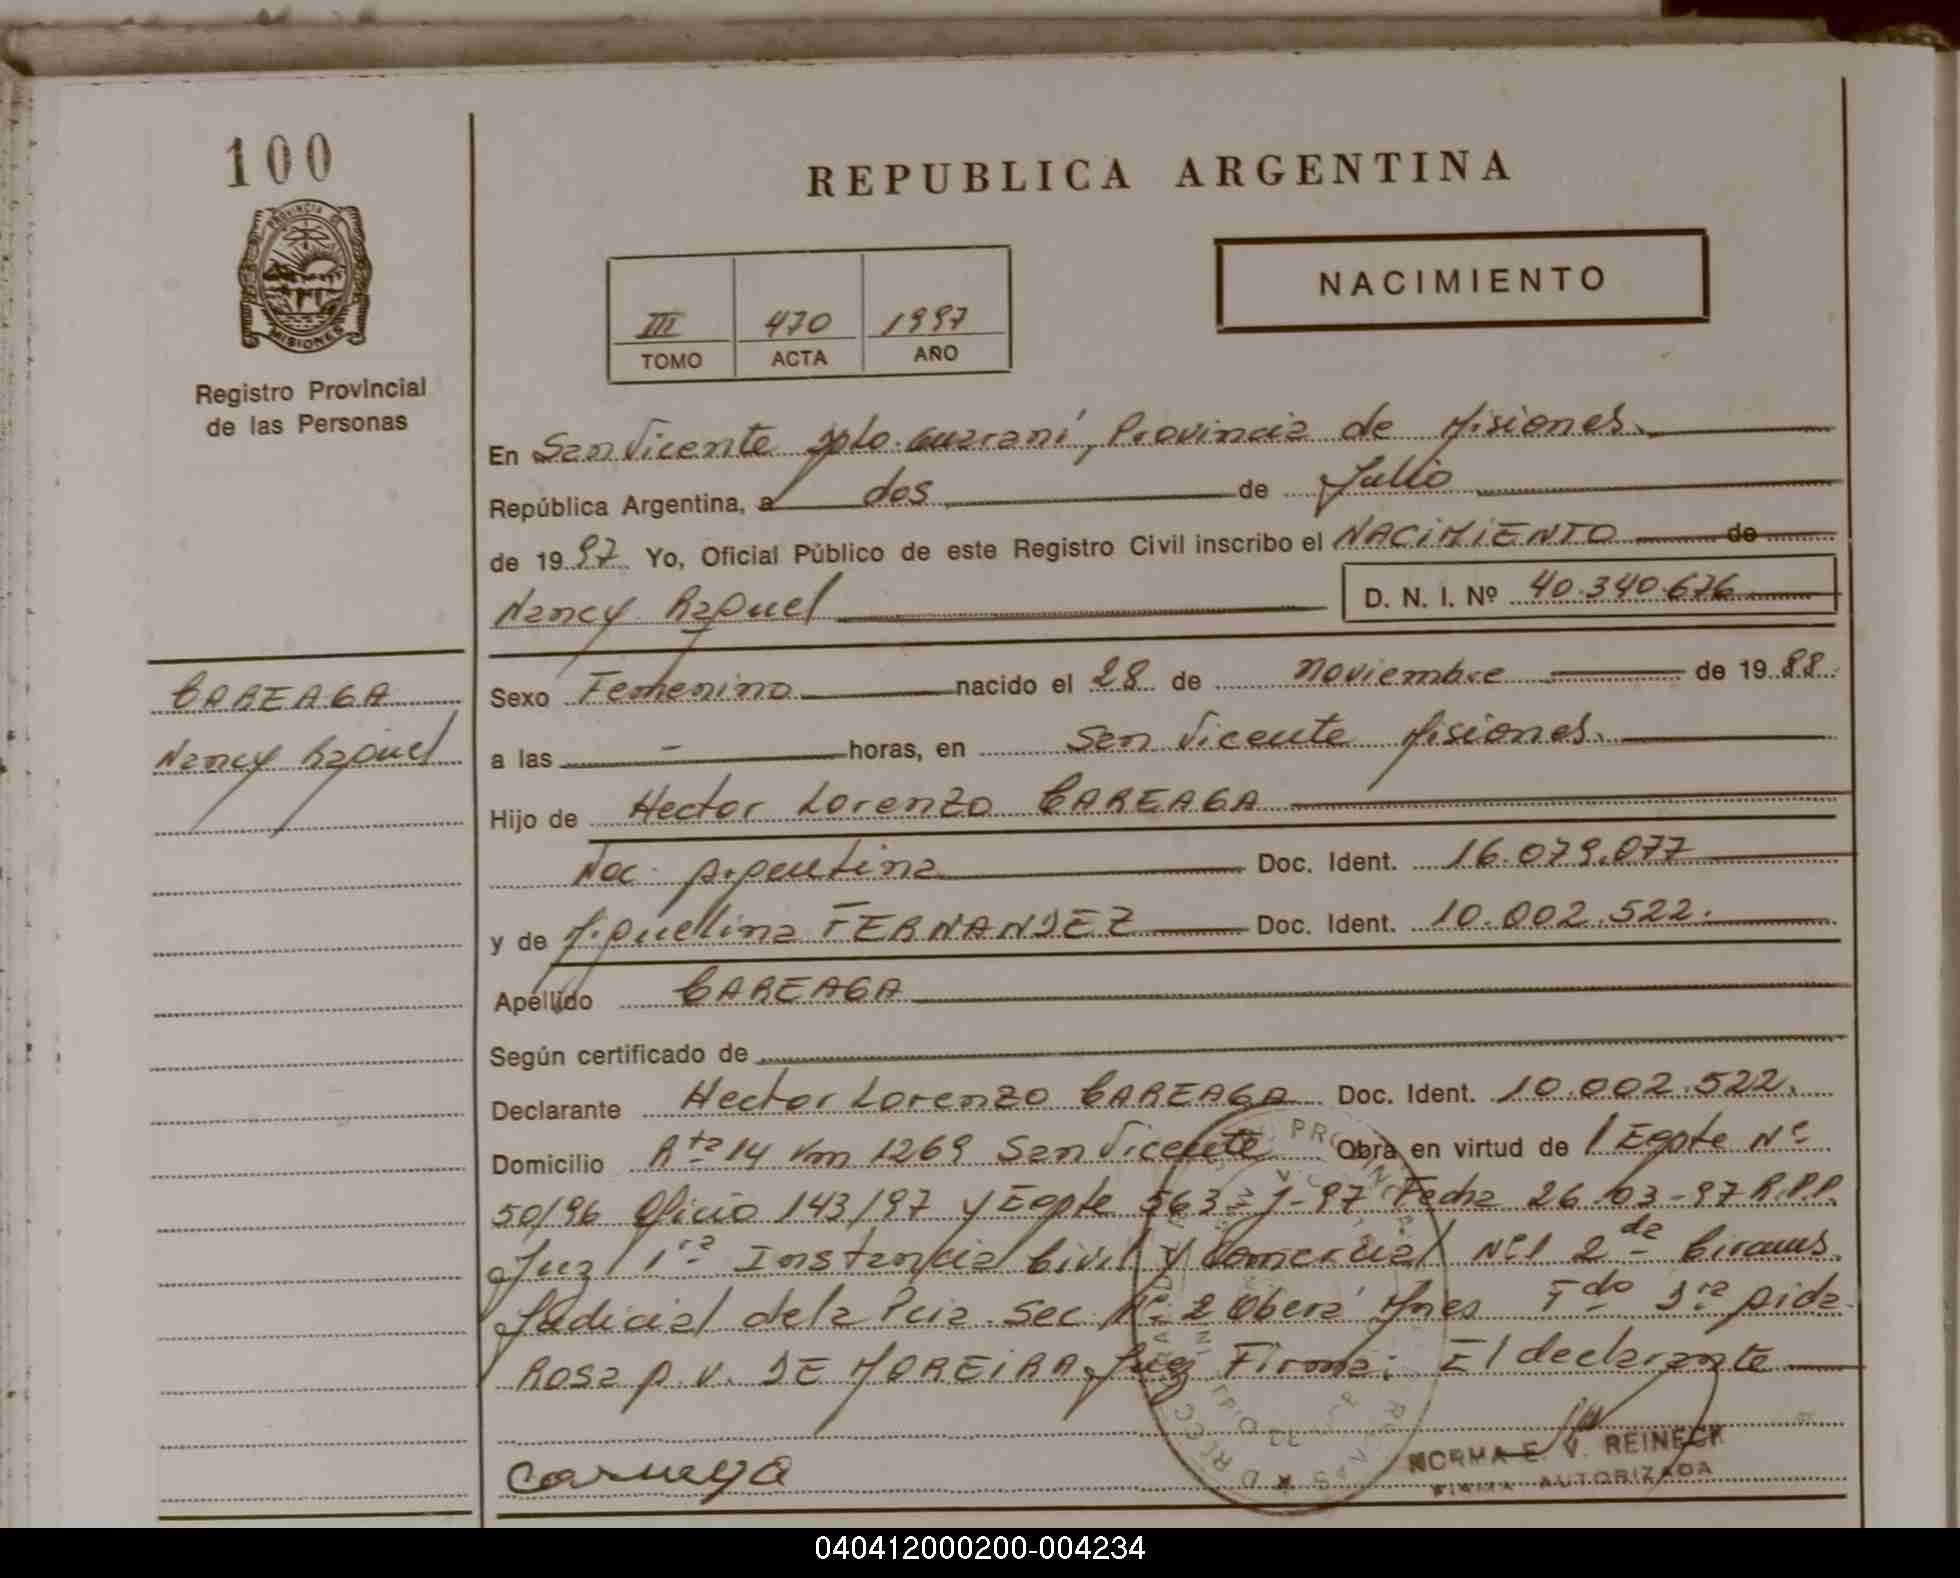 100
REPUBLICA ARGENTINA
PROVINCIA DE
MISIONES
NACIMIENTO
III 470 1997
TOMO ACTA AÑO
Registro Provincial
de las Personas
En San Vicente Dpto. Guaraní, Provincia de Misiones
República Argentina, a dos de Julio
de 1997 Yo, Oficial Público de este Registro Civil inscribo el NACIMIENTO de
Nancy Raquel D. N. I. Nº 40.340.676
CAREAGA
Nancy Raquel
Sexo Femenino nacido el 28 de Noviembre de 1988.
a las - horas, en San Vicente Misiones
Hijo de Hector Lorenzo CAREAGA
Nac. Argentina Doc. Ident. 16.079.077
y de Miquelina FERNANDEZ Doc. Ident. 10.002.522.
Apellido CAREAGA
Según certificado de
Declarante Hector Lorenzo CAREAGA Doc. Ident. 10.002.522.
Domicilio Rta 14 Km 1269 San Vicente Obra en virtud de Expte Nº
50/96 Oficio 143/97 y Expte 563 J-97 Fecha 26-03-97 R.P.P.
Juz 1ra Instancia Civil y Comercial Nº1 2da Circuns.
Judicial de la Pcia. Sec. Nº 2 Oberá Mnes Fdo Dra Aida
Rosa A. V. DE MOREIRA Juez Firma: El declarante
Careaga
NORMA E. V. REINECK
FIRMA AUTORIZADA
040412000200-004234